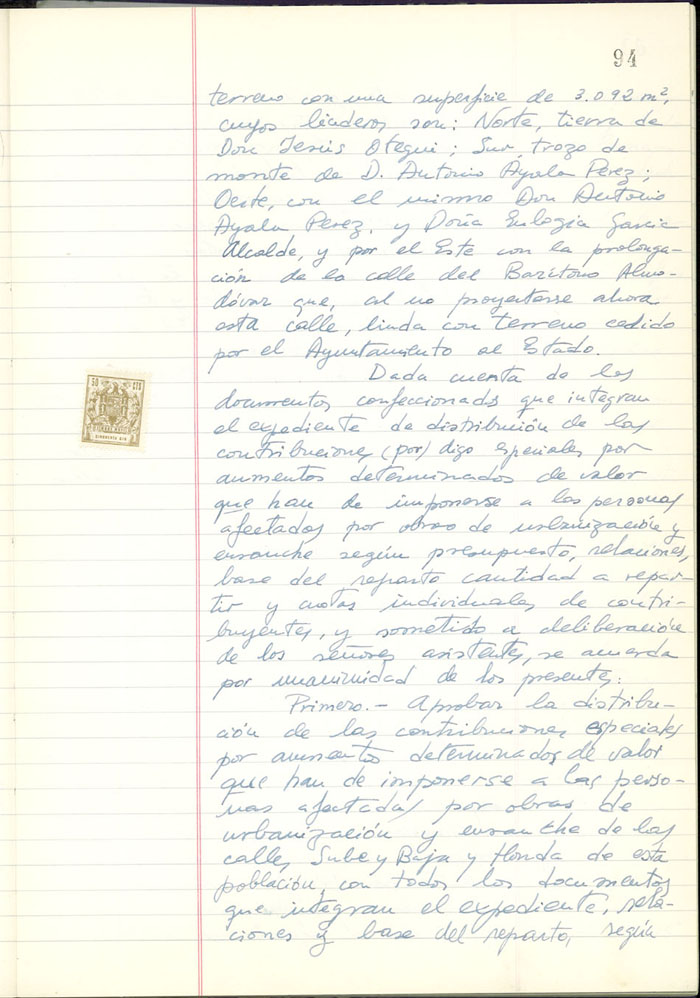 94
terreno con una superficie de 3.092 m²,
cuyos linderos son: Norte, tierra de
Don Jesús Otegui; Sur, trozo de
monte de D. Antonio Ayala Perez;
Oeste, con el mismo Don Antonio
Ayala Perez, y Doña Eulogia Garcia
Alcalde, y por el Este con la prolonga-
ción de la calle del Barítono Almo-
dóvar que, al no proyectarse ahora
esta calle, linda con terreno cedido
por el Ayuntamiento al Estado.
Dada cuenta de los
documentos confeccionados que integran
el expediente de distribución de las
contribuciones (por) digo especiales por
aumentos determinados de valor
que han de imponerse a las personas
afectadas por obras de urbanización y
ensanche según presupuesto, relaciones,
base del reparto cantidad a repar-
tir y cuotas individuales de contri-
buyentes, y sometido a deliberación
de los señores asistentes, se acuerda
por unanimidad de los presentes:
Primero.- Aprobar la distribu-
ción de las contribuciones especiales
por aumentos determinados de valor
que han de imponerse a las perso-
nas afectadas por obras de
urbanización y ensanche de las
calles Sube y Baja y Honda de esta
población, con todos los documentos
que integran el expediente, rela-
ciones y base del reparto, según
50 CTS